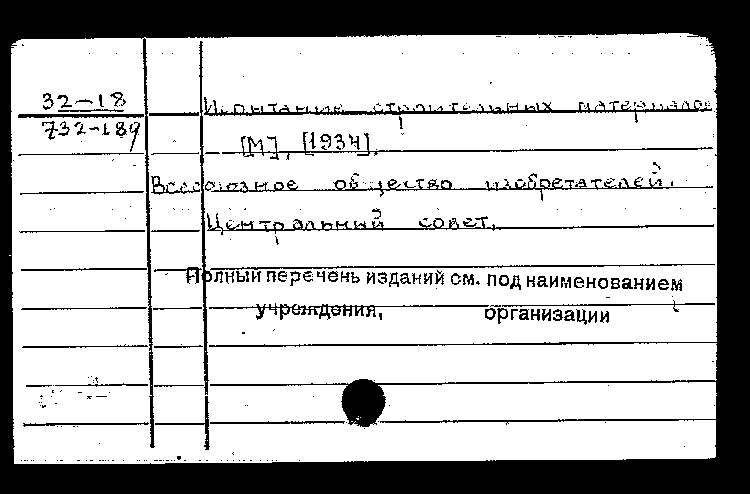 32-18
732-189
Испытание строительных материалов
[М], [1934].
Всесоюзное общество изобретателей.
Центральный совет.
Полный перечень изданий см. под наименованием
учреждения, организации